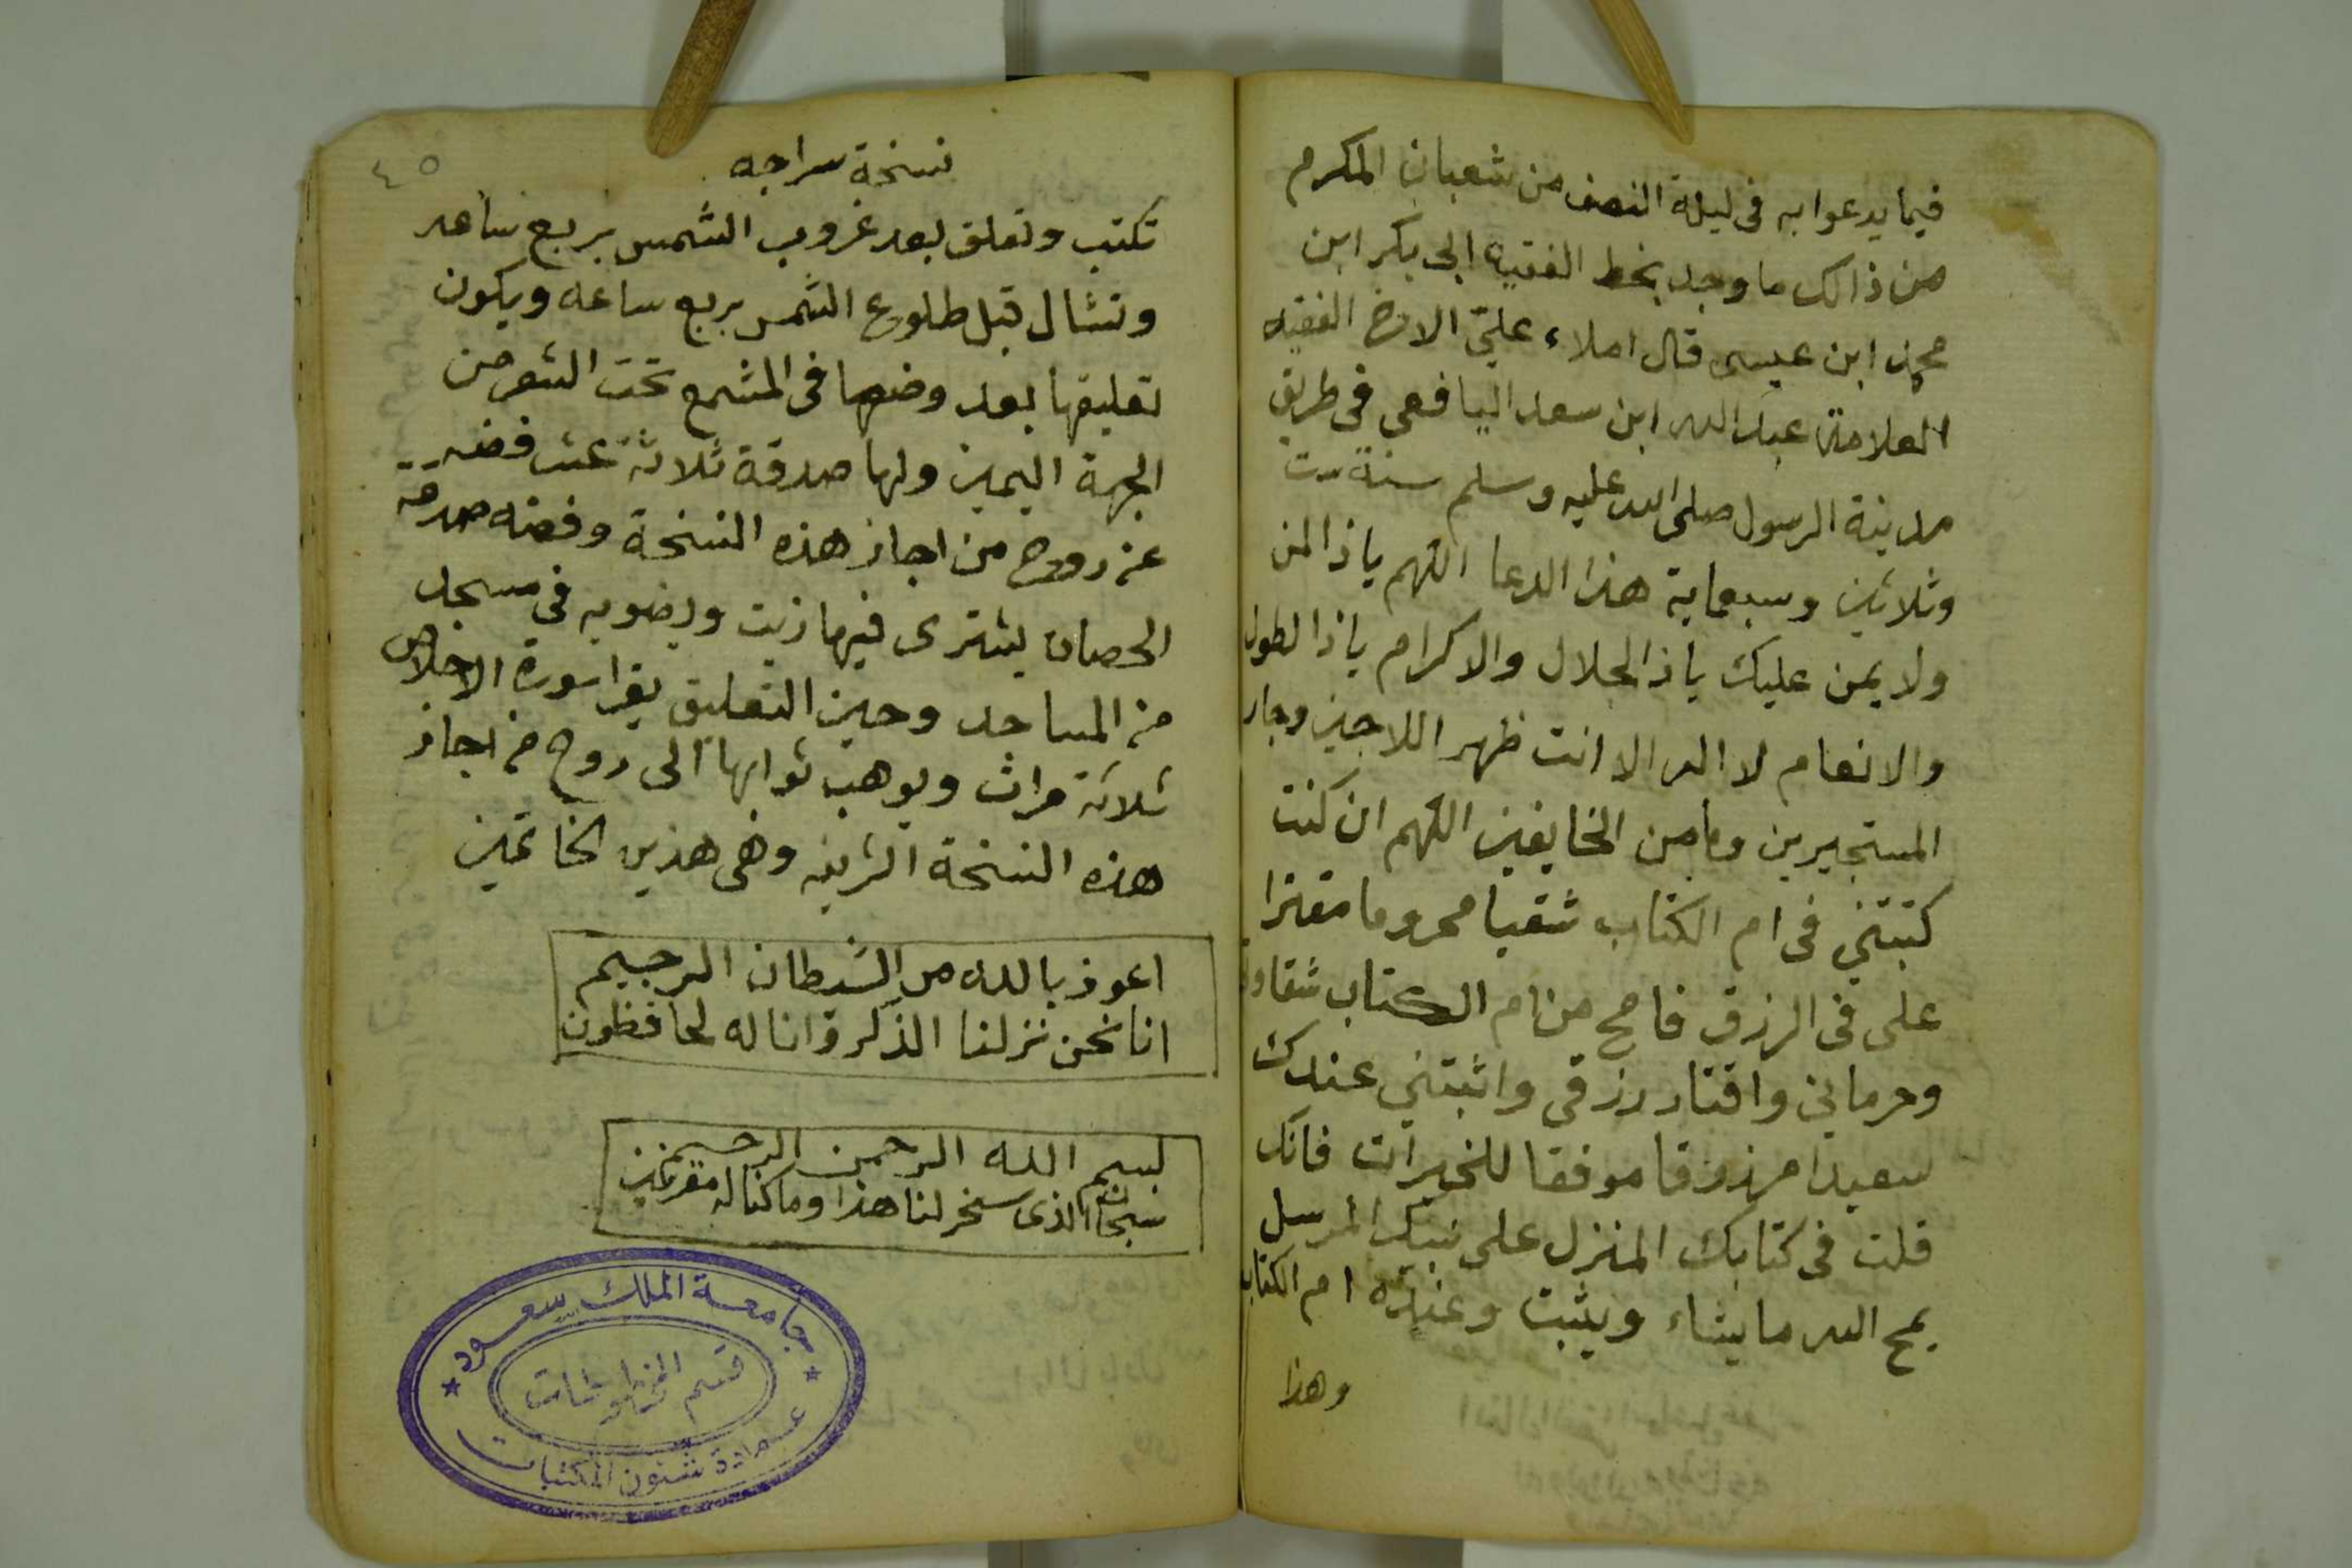 فيما يدعوا به فى ليلة النصف من شعبان المكرم
من ذالك ما وجد بخط الفقيه ابى بكر ابن
محمد ابن عيسى قال املاء على الاخ الفقيه
العلامة عبد الله ابن سعد اليافعي فى طريق
مدينة الرسول صلى الله عليه وسلم سنة ست
وثلاثين وسبعماية هذا الدعا اللهم ياذا المن
ولا يمن عليك ياذالجلال والاكرام ياذا الطول
والانعام لا اله الا انت ظهر اللاجين وجار
المستجيرين ومامن الخايفين اللهم ان كنت
كتبتني فى ام الكتاب شقيا محروما مقترا
على فى الرزق فامح من ام الكتاب شقاوتي
وحرماني واقتار رزقي واثبتني عندك
سعيدا مرزوقا موفقا للخيرات فانك
قلت فى كتابك المنزل على نبيك المرسل
يمح الله ما يشاء ويثبت وعنده ام الكتاب
وهذا
٤٥
نسخة سراجه
تكتب وتعلق بعد غروب الشمس بربع ساعه
وتشال قبل طلوع الشمس بربع ساعه ويكون
تعليقها بعد وضعها فى المشمع تحت الشعر من
الجهة اليمين ولها صدقة ثلاثة عشر فضه
عن روح من اجاز هذه النسخة وفضه صدقة
الحصان يشترى فيها زيت ويضو به فى مسجد
من المساجد وحين التعليق يقرا سورة الاخلاص
ثلاثة مرات ويوهب ثوابها الى روح من اجاز
هذه النسخة الشريفه وهى هذين الخاتمين
اعوذ بالله من الشيطان الرجيم
انا نحن نزلنا الذكر وانا له لحافظون
بسم الله الرحمن الرحيم
سبحان الذى سخر لنا هذا وما كنا له مقرنين
جامعة الملك سعود
قسم المخطوطات
عمادة شئون المكتبات